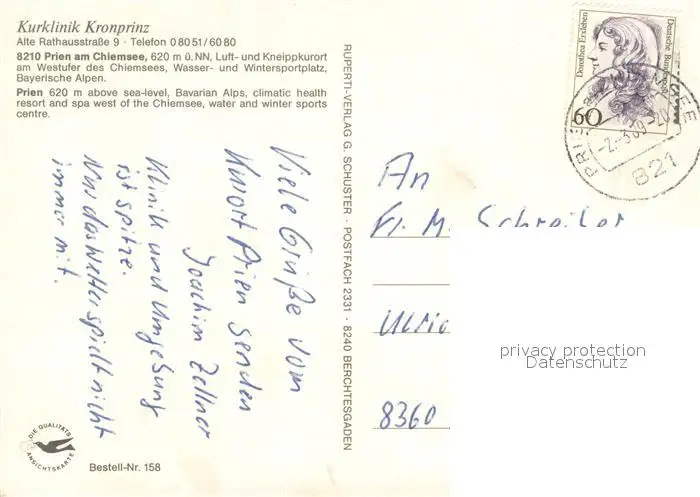 Kurklinik Kronprinz
Alte Rathausstraße 9 · Telefon 0 80 51 / 60 80
8210 Prien am Chiemsee, 620 m ü.NN, Luft- und Kneippkurort
am Westufer des Chiemsees, Wasser- und Wintersportplatz,
Bayerische Alpen.
Prien 620 m above sea-level, Bavarian Alps, climatic health
resort and spa west of the Chiemsee, water and winter sports
centre.
Viele Grüße vom
Kurort Prien senden
Joachim Zellner
Klinik und Umgebung
ist spitze.
Nur das Wetter spielt nicht
immer mit.
DIE QUALITÄTS
ANSICHTSKARTE
Bestell-Nr. 158
RUPERTI-VERLAG G. SCHUSTER · POSTFACH 2331 · 8240 BERCHTESGADEN
Dorothea Erxleben
Deutsche Bundespost
60
821
An
Fr. M. Schreiber
8360
privacy protection
Datenschutz